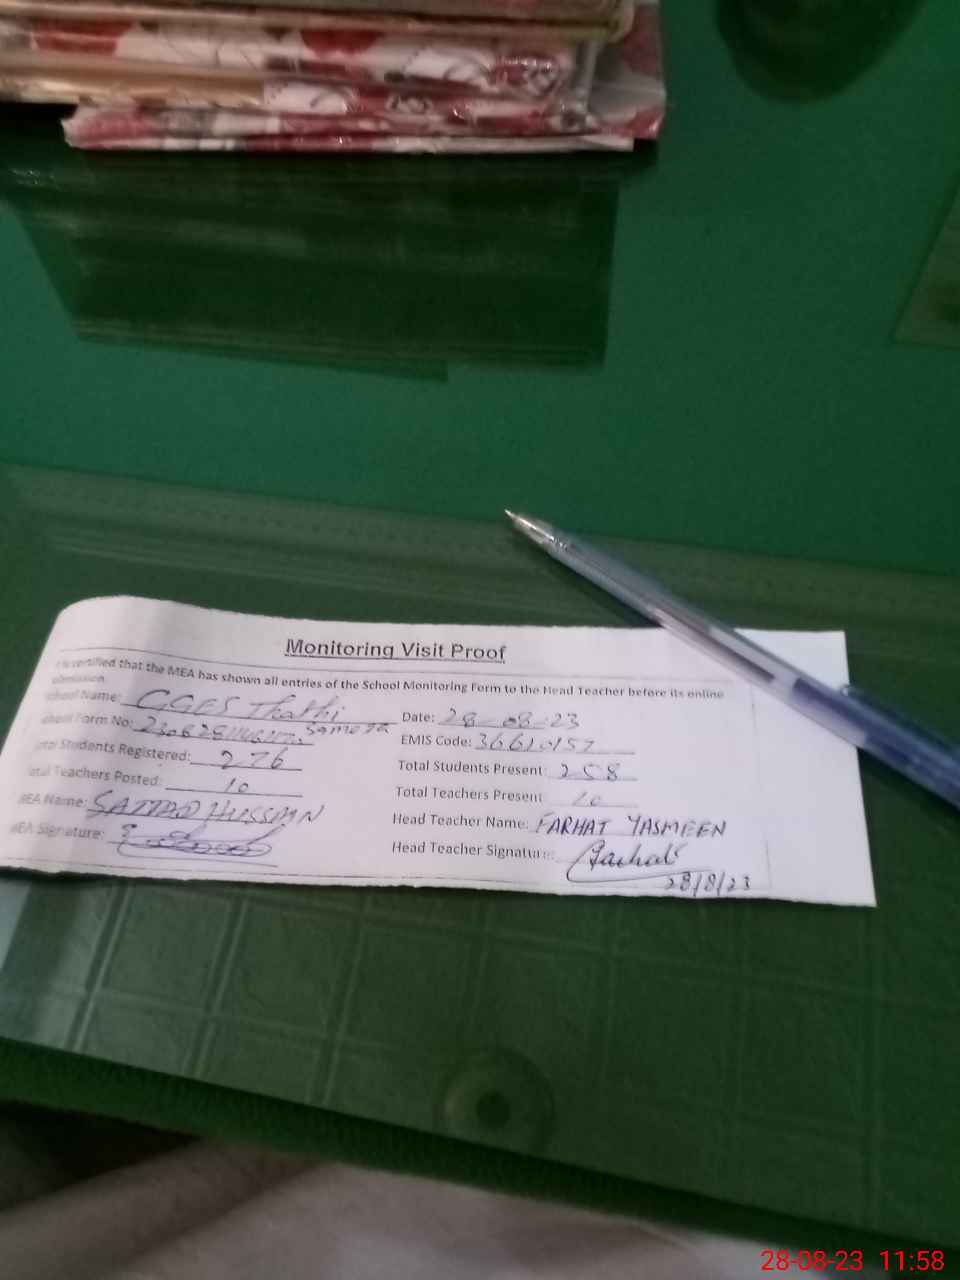 Monitoring Visit Proof
certified that the MEA has shown all entries of the School Monitoring Form to the Head Teacher before its online
School Name: GGES Thathi Date: 28-08-23
Samota
Form No: EMIS Code:
Total Students Registered: 276 Total Students Present: 258
Total Teachers Posted: 10 Total Teachers Present 10
MEA Name: HUSSAIN Head Teacher Name: FARHAT YASMEEN
MEA Signature: Head Teacher Signature: Farhat
28/8/23
28-08-23 11:58